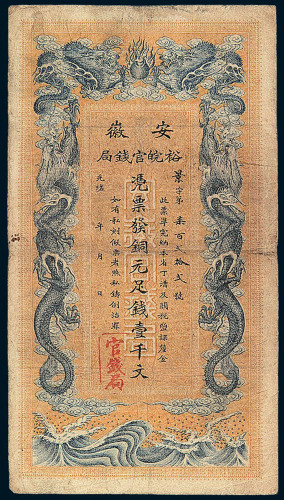 安徽
裕皖官錢局
景字第柒百弍拾弍號
此票準完納本省丁漕及關稅鹽課釐金
憑票發銅元足錢壹千文
如有私刻假票者照私鑄例治罪
光緒 年 月 日
官錢局